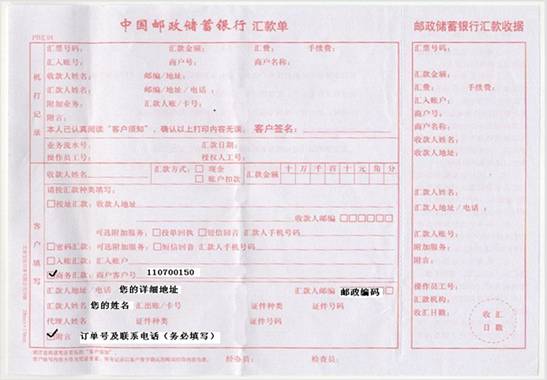 中国邮政储蓄银行 汇款单
汇票号码： 汇款金额： 汇费： 手续费：
汇入账号： 商户号： 商户名称：
收款人姓名： 邮编/地址：
汇款人姓名： 邮编/地址/电话：
附加业务： 汇款人账/卡号：
附言：
本人已认真阅读“客户须知”，确认以上打印内容无误。 客户签名：
业务流水号： 汇款日期：
操作员工号： 授权人工号：
机打记录
收款人姓名 汇款方式： 现金 账户扣款 汇款金额 十 万 千 百 十 元 角 分
请按汇款种类填写：
按址汇款：收款人地址
收款人邮编
可选附加服务： 投单回执 短信回音 汇款人手机号码
密码汇款：可选附加服务： 短信回音 汇款人手机号码
入账汇款：汇入账户
商务汇款：商户客户号 110700150
汇款人地址/电话 您的详细地址 汇款人邮编 邮政编码
汇款人姓名 您的姓名 汇出账/卡号 证件种类 证件号码
代理人姓名 证件种类 证件号码
附言 订单号及联系电话（务必填写）
客户填写
经办员： 检查员：
邮政储蓄银行汇款收据
汇票号码：
汇款金额：
汇费： 手续费：
汇入账户：
商户号：
商户名称：
收款人姓名：
收款人地址：
汇款人姓名：
汇款人地址/电话：
汇款人账号：
附加服务：
附言：
操作员工号：
汇款机构：
收汇日期：
收汇
日戳